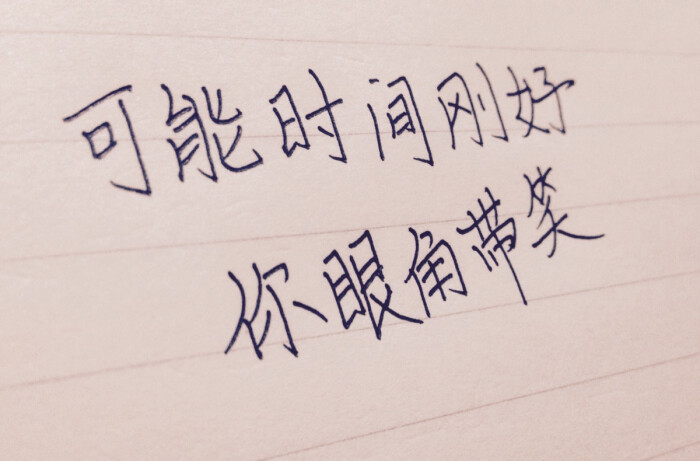 可能时间刚好
你眼角带笑